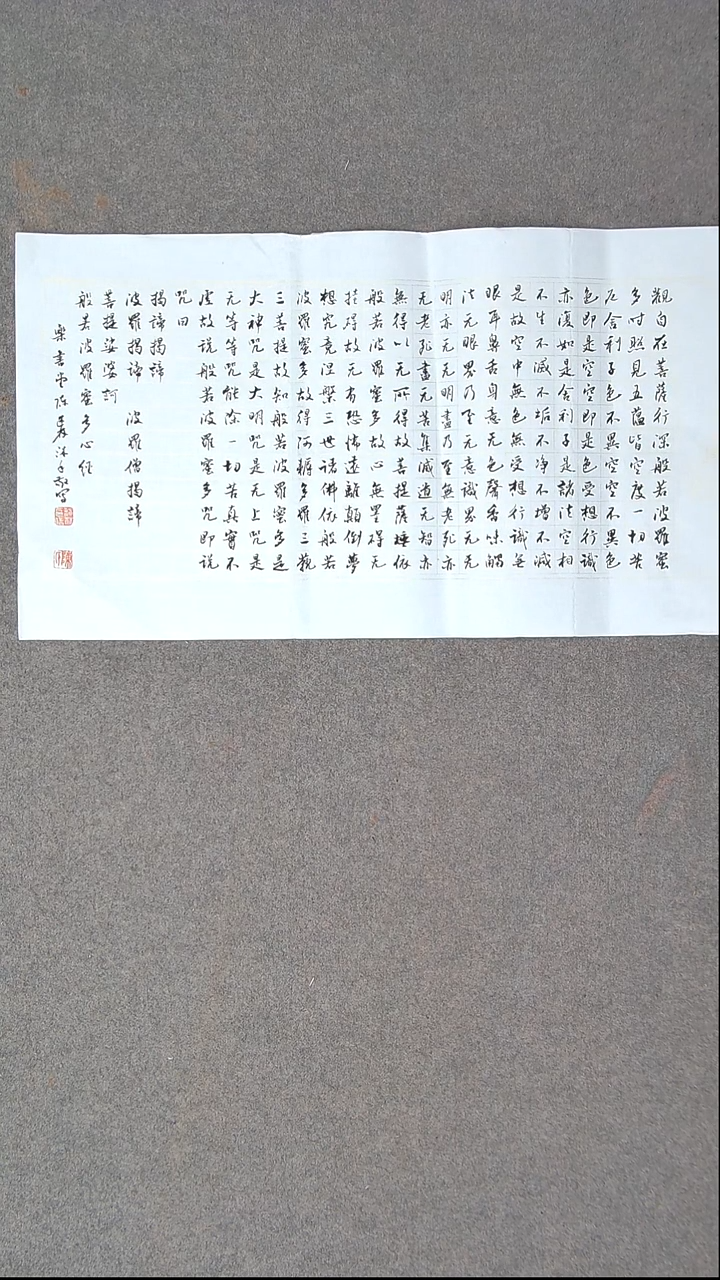 觀自在菩薩行深般若波羅蜜
多时照見五蕴皆空度一切苦
厄舍利子色不異空空不異色
色即是空空即是色受想行識
亦復如是舍利子是諸法空相
不生不滅不垢不净不增不减
是故空中無色無受想行識無
眼耳鼻舌身意无色聲香味觸
法无眼界乃至无意識界无无
明亦无无明盡乃至無老死亦
无老死盡无苦集滅道无智亦
無得以无所得故菩提薩埵依
般若波羅蜜多故心無罣碍无
挂碍故无有恐怖遠離顛倒夢
想究竟涅槃三世诸佛依般若
波羅蜜多故得阿耨多羅三藐
三菩提故知般若波羅蜜多是
大神咒是大明咒是无上咒是
无等等咒能除一切苦真實不
虚故说般若波羅蜜多咒即说
咒曰
揭諦揭諦
波羅揭諦 波羅僧揭諦
菩提娑婆訶
般若波羅蜜多心经